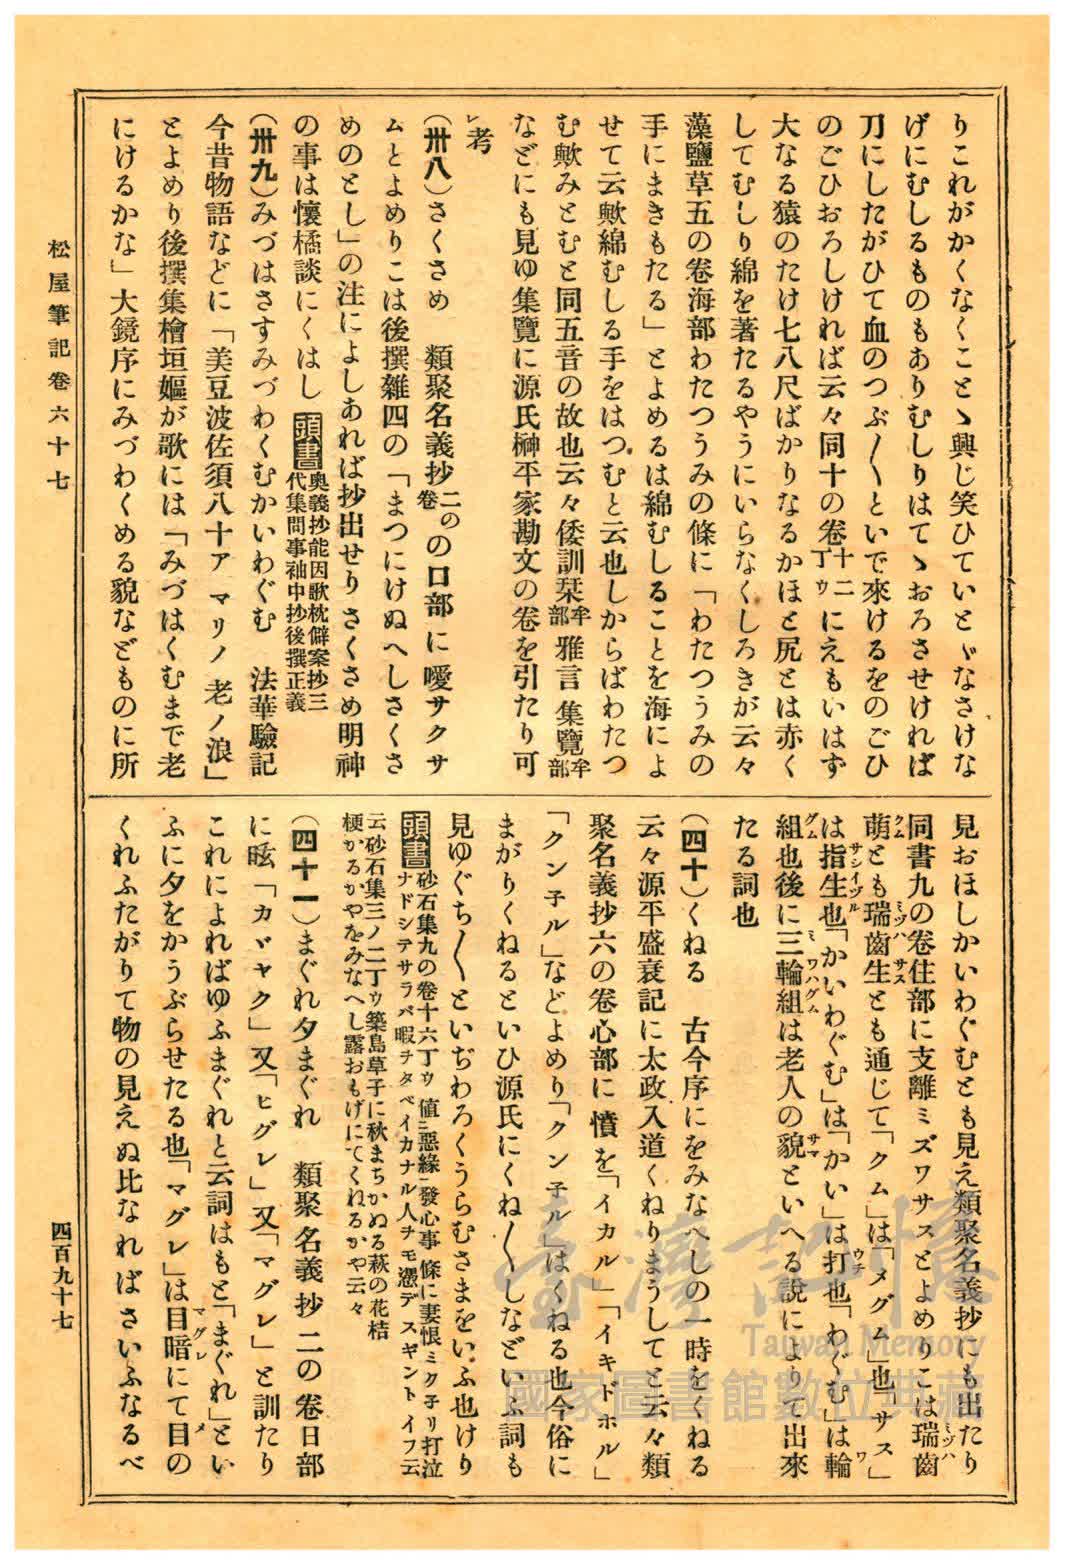 りこれがかくなくことゝ興じ笑ひていとゞなさけな
げにむしるものもありむしりはてゝおろさせければ
刀にしたがひて血のつぶ〱といで來けるをのごひ
のごひおろしければ云々同十の卷十二丁ウにえもいはず
大なる猿のたけ七八尺ばかりなるかほと尻とは赤く
してむしり綿を著たるやうにいらなくしろきが云々
藻鹽草五の卷海部わたつうみの條に「わたつうみの
手にまきもたる」とよめるは綿むしることを海によ
せて云歟綿むしる手をはつむと云也しからばわたつ
む歟みとむと同五音の故也云々倭訓栞牟部雅言集覽牟部
などにも見ゆ集覽に源氏榊平家勘文の卷を引たり可
レ考
(卅八)さくさめ　類聚名義抄二の卷の口部に噯サクサ
ムとよめりこは後撰雜四の「まつにけぬへしさくさ
めのとし」の注によしあれば抄出せりさくさめ明神
の事は懷橘談にくはし 頭書 奧義抄能因歌枕僻案抄三
代集問事袖中抄後撰正義
(卅九)みづはさすみづわくむかいわぐむ　法華驗記
今昔物語などに「美豆波佐須八十アマリノ老ノ浪」
とよめり後撰集檜垣嫗が歌には「みづはくむまで老
にけるかな」大鏡序にみづわくめる貌などものに所
見おほしかいわぐむとも見え類聚名義抄にも出たり
同書九の卷住部に支離ミズワサスとよめりこは瑞齒ミヅハ
萌クムとも瑞齒生ミヅハサスとも通じて「クム」は「メグム」也「サス」
は指生サシイヅル也「かいわぐむ」は「かい」は打ウチ也「わぐむ」は輪ワ
組グム也後に三輪組ミワハグムは老人の貌サマといへる說によりて出來
たる詞也
(四十)くねる　古今序にをみなへしの一時をくねる
云々源平盛衰記に太政入道くねりまうしてと云々類
聚名義抄六の卷心部に憤を「イカル」「イキドホル」
「クン子ル」などよめり「クン子ル」はくねる也今俗に
まがりくねるといひ源氏にくね〱しなどいふ詞も
見ゆぐち〱といぢわろくうらむさまをいふ也けり
頭書 砂石集九の卷十六丁ウ値二惡緣一發心事條に妻恨ミク子リ打泣
ナドシテサラバ暇ヲタベイカナル人ヲモ憑デスギントイフ云
云砂石集三ノ二丁ウ築島草子に秋まちかぬる萩の花桔
梗かるかやをみなへし露おもげにてくねるかや云々
(四十一)まぐれ夕まぐれ　類聚名義抄二の卷日部
に昡「カヾヤク」又「ヒグレ」又「マグレ」と訓たり
これによればゆふまぐれと云詞はもと「まぐれ」とい
ふに夕をかうぶらせたる也「マグレ」は目暗マグレにて目メの
くれふたがりて物の見えぬ比なればさいふなるべ
松屋筆記卷六十七
四百九十七
臺灣記憶
Taiwan Memory
國家圖書館數位典藏